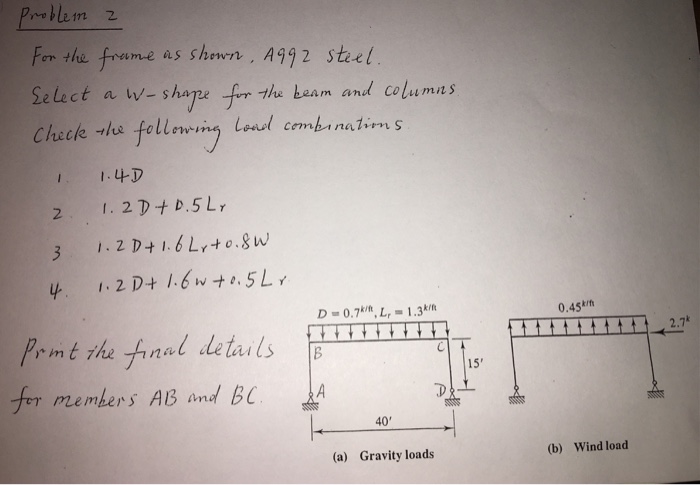 Problem 2
For the frame as shown, A992 steel.
Select a W-shape for the beam and columns
Check the following load combinations
1. 1.4D
2. 1.2D+0.5Lr
3 1.2D+1.6Lr+0.8W
4. 1.2D+1.6W+0.5Lr
Print the final details
for members AB and BC.
D = 0.7k/ft, Lr = 1.3k/ft
B
C
15'
A
D
40'
(a) Gravity loads
0.45k/ft
2.7k
(b) Wind load